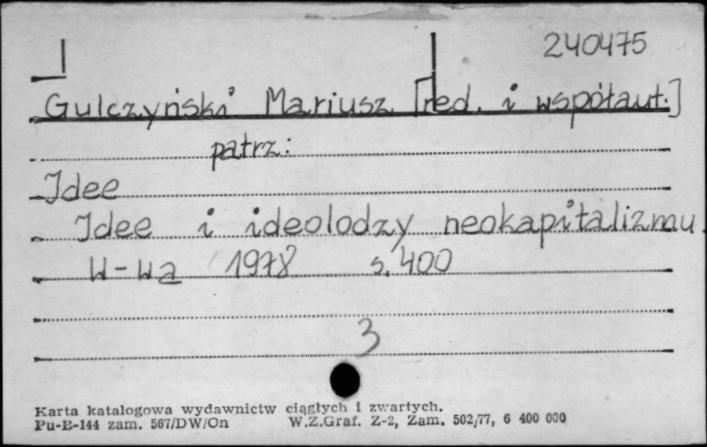 240475
Gulczyński Mariusz [red. i współaut.]
patrz:
Idee
Idee i ideolodzy neokapitalizmu.
W-wa 1978 s. 400
3
Karta katalogowa wydawnictw ciągłych i zwartych.
Pu-B-144 zam. 567/DW/On W.Z.Graf. Z-2, Zam. 502/77, 6 400 000